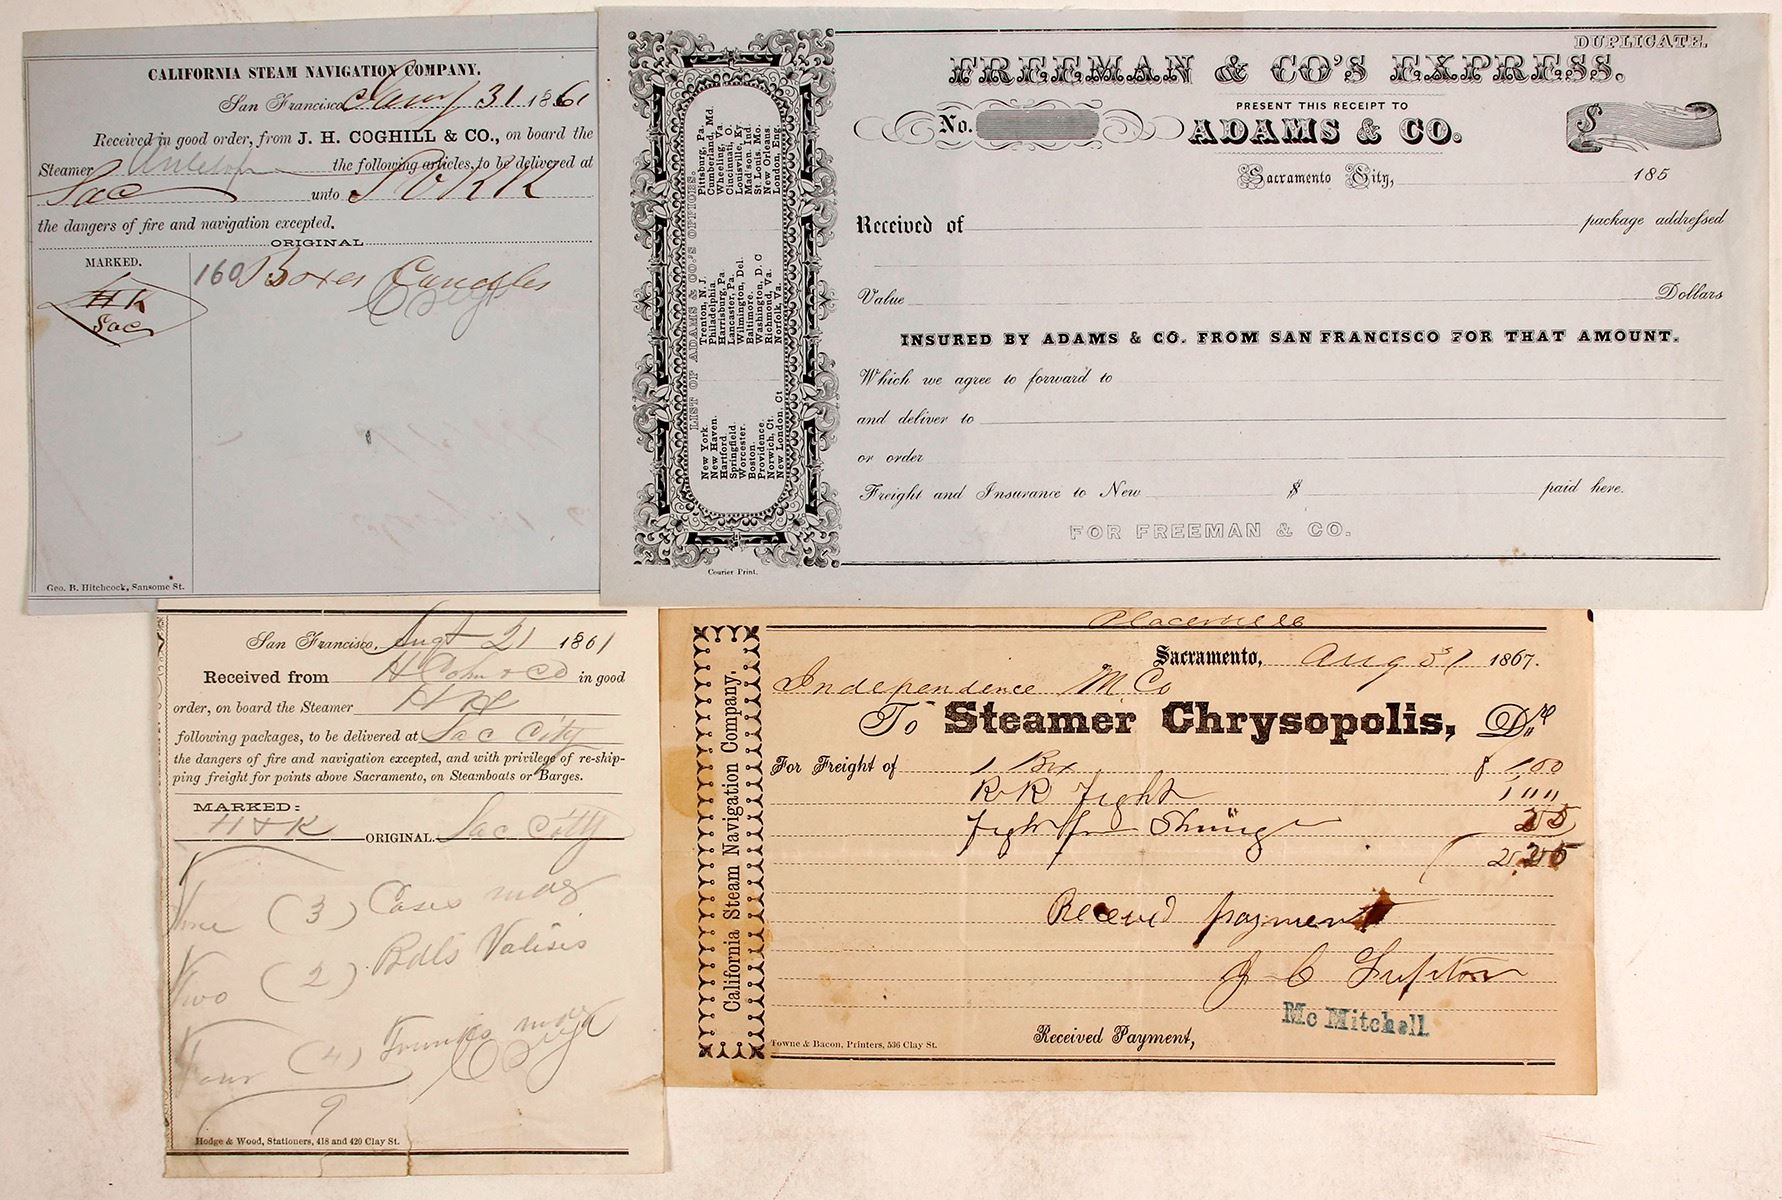 CALIFORNIA STEAM NAVIGATION COMPANY.
San Francisco, 31 1861
Received in good order, from J. H. COGHILL & CO., on board the
Steamer Antelope the following articles, to be delivered at
Sac unto
the dangers of fire and navigation excepted.
ORIGINAL
MARKED.
160 Boxes Candles
H K
Sac
Geo. B. Hitchcock, Sansome St.
DUPLICATE.
FREEMAN & CO'S EXPRESS.
PRESENT THIS RECEIPT TO
No. ADAMS & CO. $
Sacramento City, 185
Received of package addressed
Value Dollars
INSURED BY ADAMS & CO. FROM SAN FRANCISCO FOR THAT AMOUNT.
Which we agree to forward to
and deliver to
or order
Freight and Insurance to New $ paid here.
FOR FREEMAN & CO.
LIST OF ADAMS & CO.'S OFFICES.
New York. Trenton, N. J. Pittsburg, Pa.
New Haven. Philadelphia. Cumberland, Md.
Hartford. Harrisburg, Pa. Wheeling, Va.
Springfield. Lancaster, Pa. Cincinnati, O.
Worcester. Wilmington, Del. Louisville, Ky.
Boston. Baltimore. Madison, Ind.
Providence. Washington, D. C St. Louis, Mo.
Norwich, Ct. Richmond, Va. New Orleans.
New London, Ct Norfolk, Va. London, Eng.
Courier Print.
San Francisco, Augt 21 1861
Received from H Cohn & Co in good
order, on board the Steamer
following packages, to be delivered at Sac City
the dangers of fire and navigation excepted, and with privilege of re-ship-
ping freight for points above Sacramento, on Steamboats or Barges.
MARKED:
H & K ORIGINAL. Sac City
(3) Cases mdz
Two (2) Bdls Valises
Four (4) Trunks mdz
9
Hodge & Wood, Stationers, 418 and 420 Clay St.
Placerville
Sacramento, Aug 31 1867.
Independence M Co
To Steamer Chrysopolis, Dr.
For Freight of 1 Box $ 1,00
R R Fight 1 " "
25
2,25
Received payment
J C Lupton
Mc Mitchell
Received Payment,
California Steam Navigation Company.
Towne & Bacon, Printers, 536 Clay St.